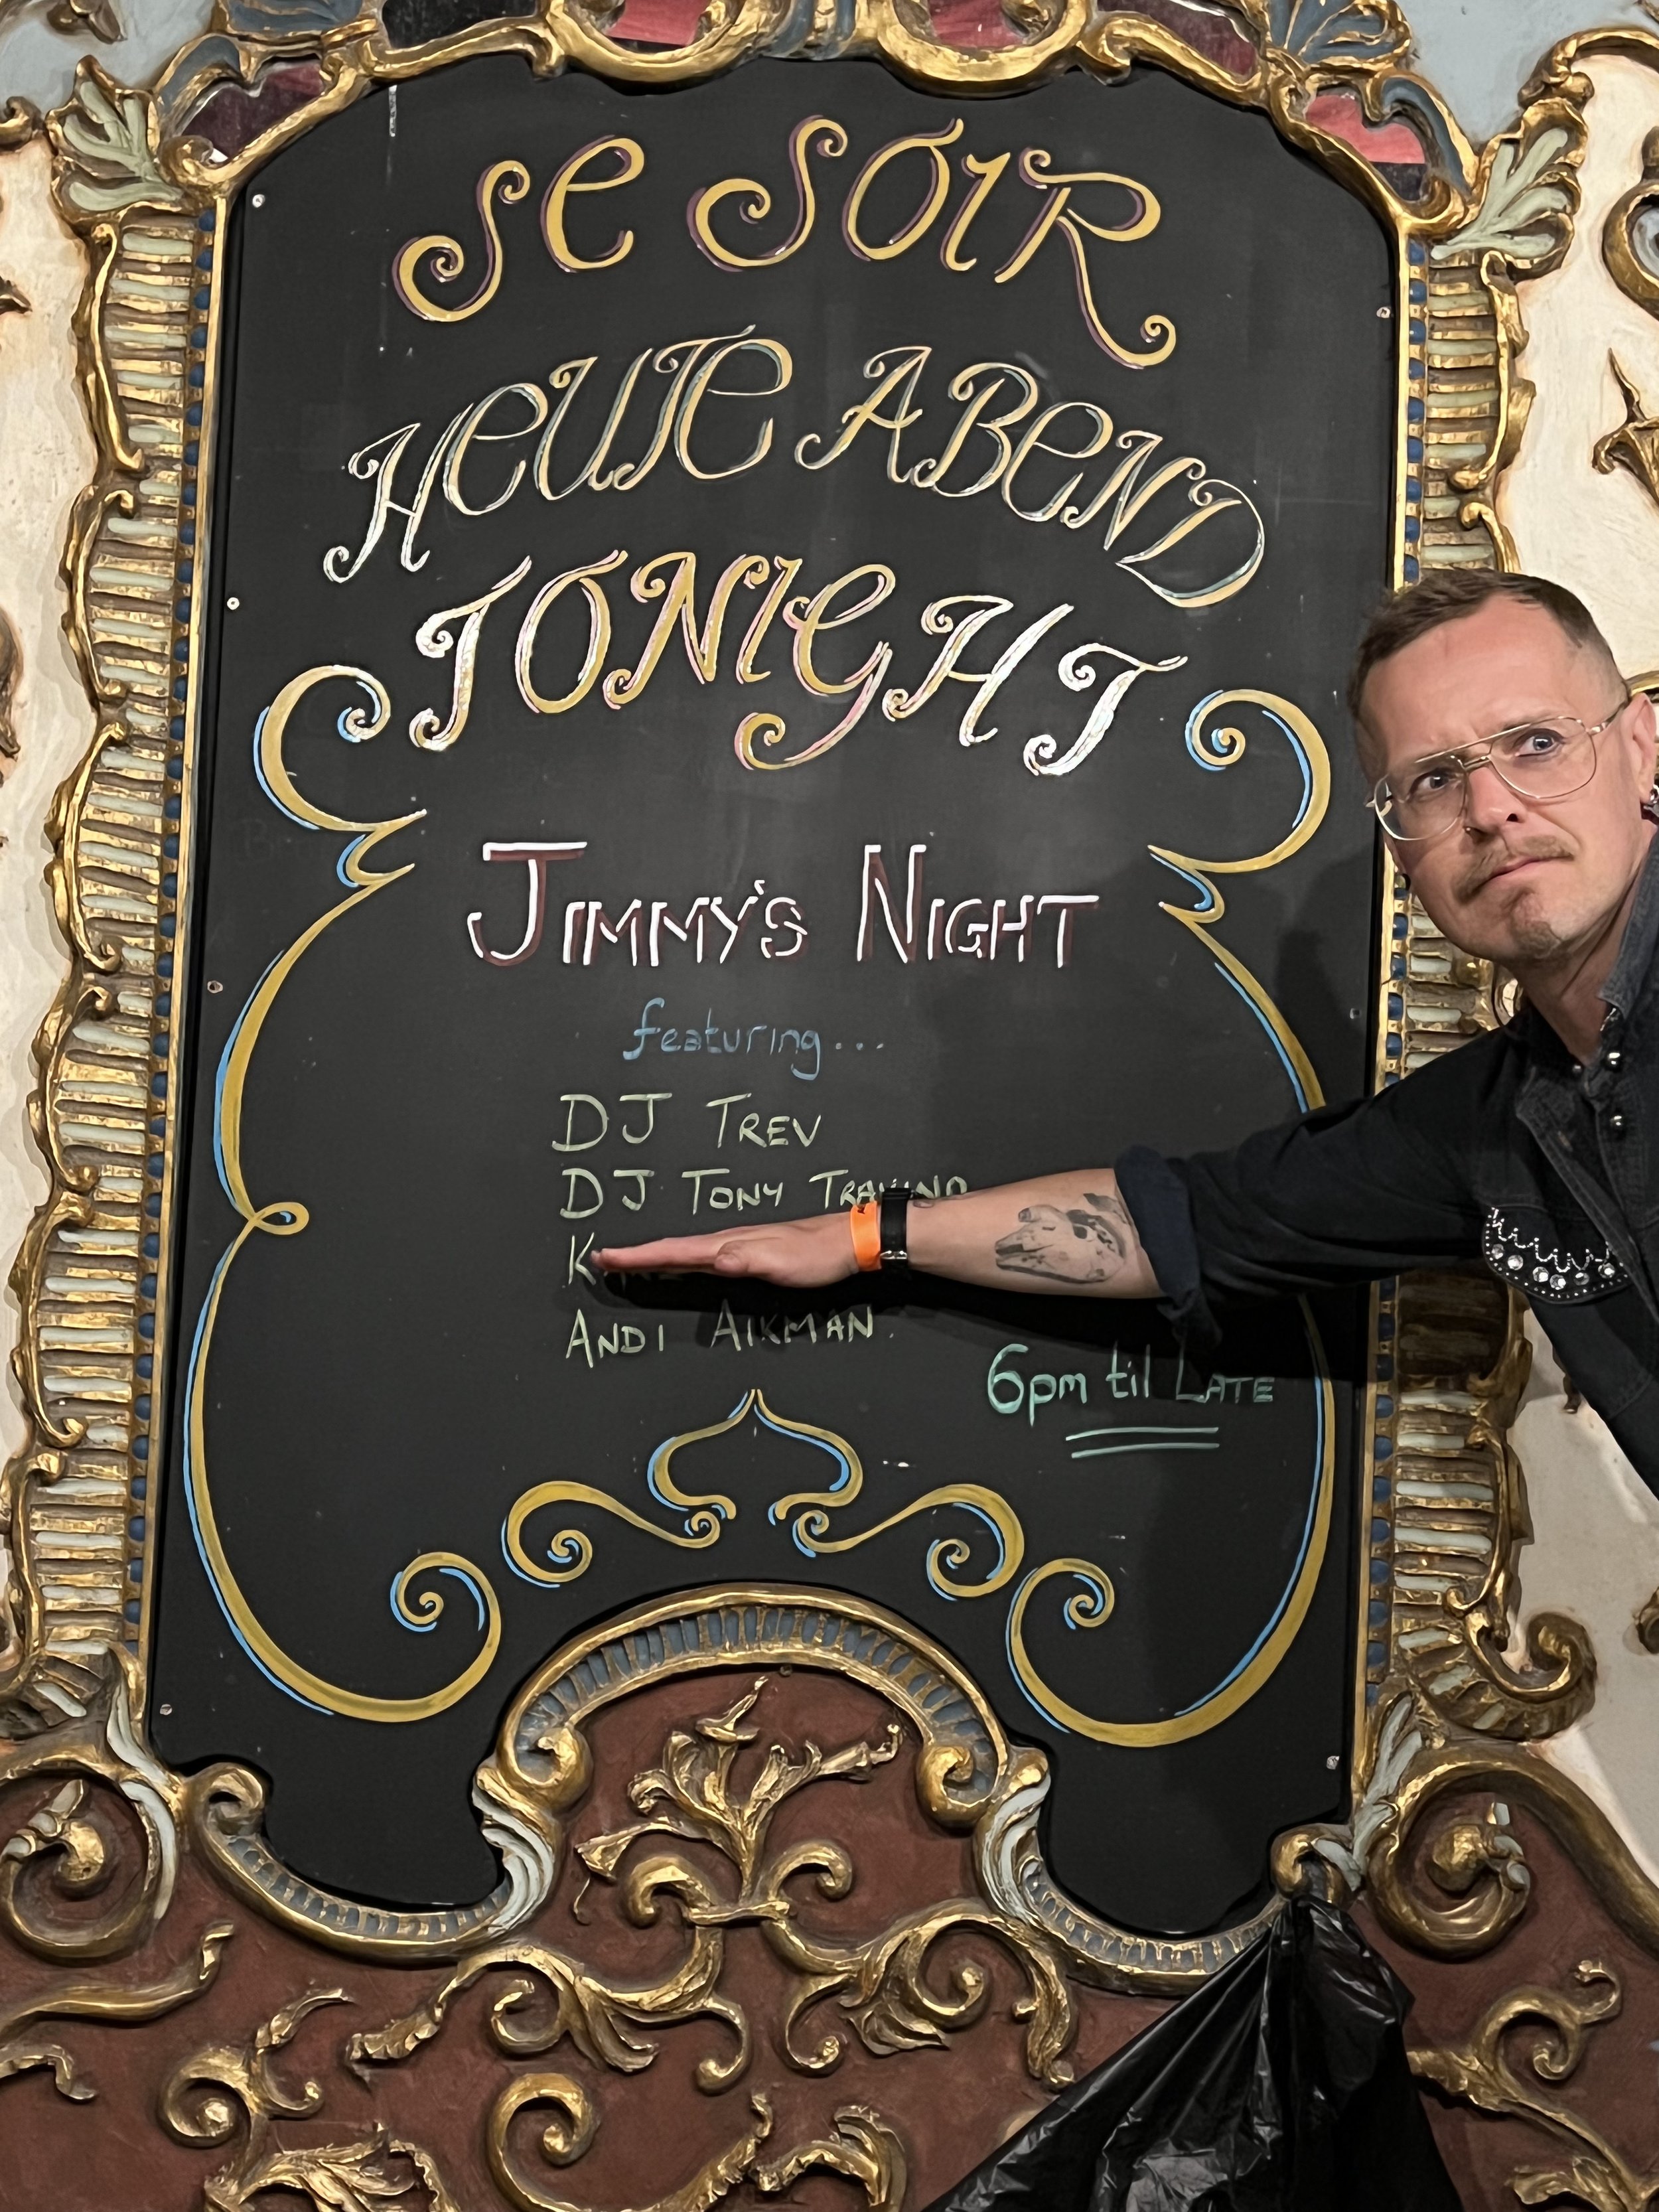 Se Soir
Heute Abend
Tonight
Jimmy's Night
featuring...
DJ Trev
DJ Tony
Andi Aikman.
6pm til Late